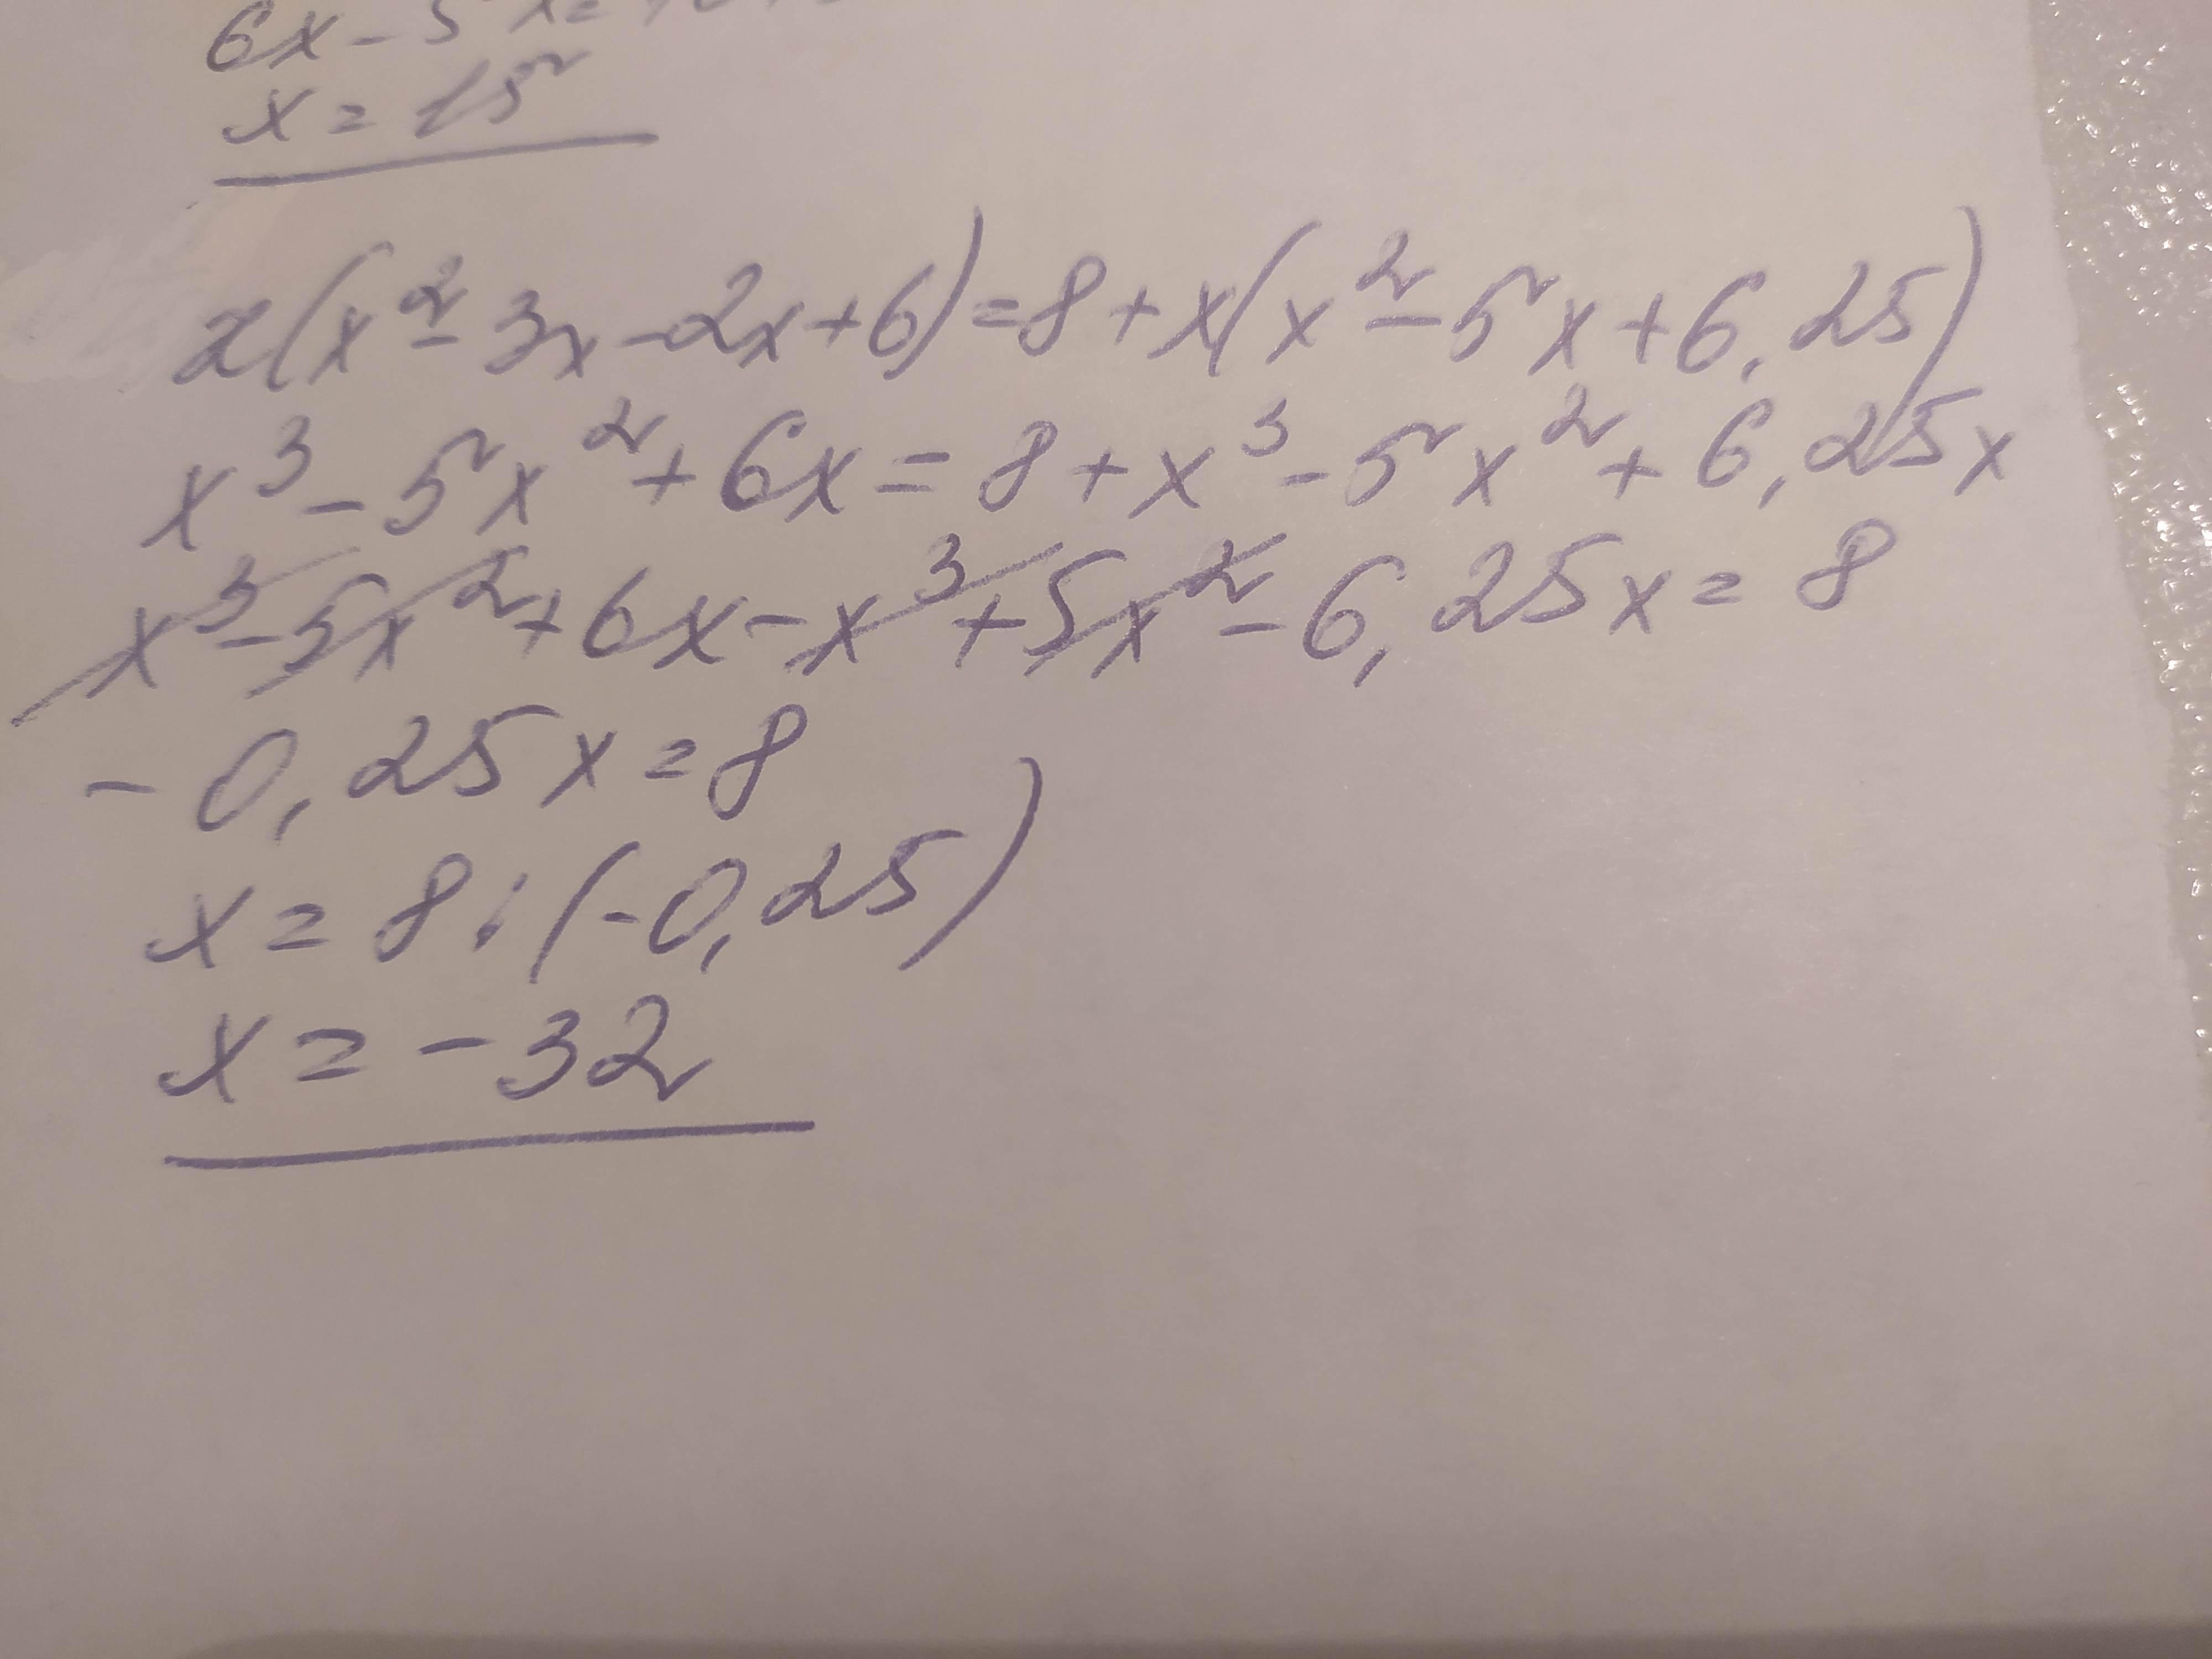 6x - 5x =
x = 15
x(x² - 3x - 2x + 6) = 8 + x(x² - 5x + 6,25)
x³ - 5x² + 6x = 8 + x³ - 5x² + 6,25x
x³ - 5x² + 6x - x³ + 5x² - 6,25x = 8
- 0,25x = 8
x = 8 : (-0,25)
x = - 32